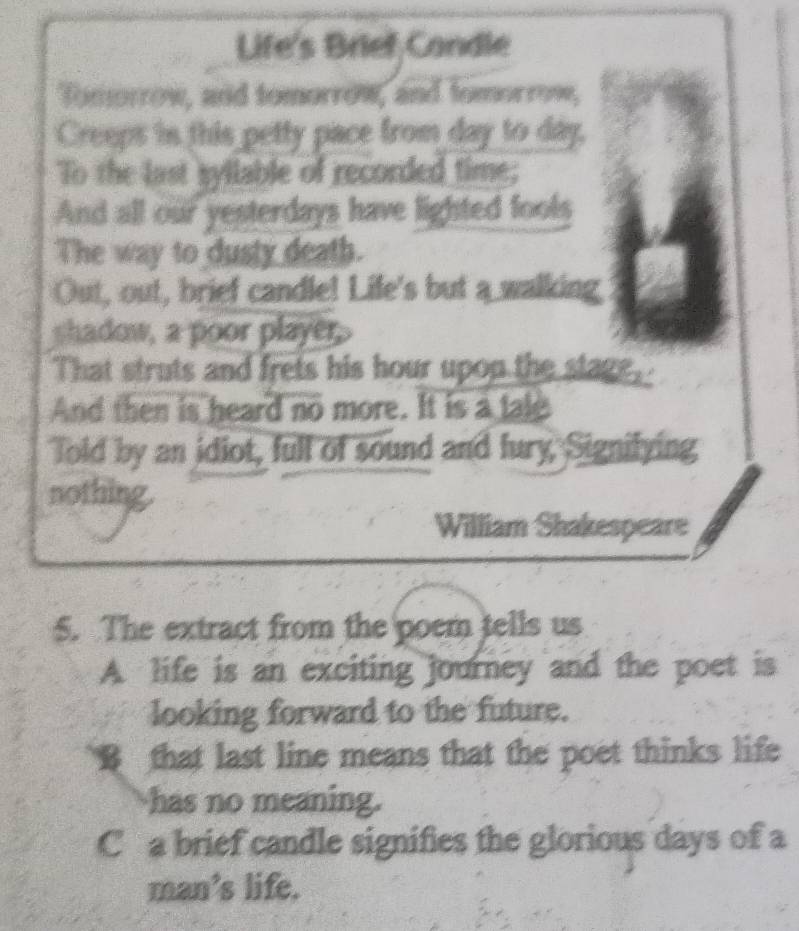 Life's Brief Candle
Tomorrow, and tomorrow, and tomorrow,
Creeps in this petty pace from day to day,
To the last syllable of recorded time;
And all our yesterdays have lighted fools
The way to dusty death.
Out, out, brief candle! Life's but a walking
shadow, a poor player,
That struts and frets his hour upon the stage,
And then is heard no more. It is a tale
Told by an idiot, full of sound and fury, Signifying
nothing.
William Shakespeare
5. The extract from the poem tells us
A life is an exciting journey and the poet is
looking forward to the future.
B that last line means that the poet thinks life
has no meaning.
C a brief candle signifies the glorious days of a
man's life.